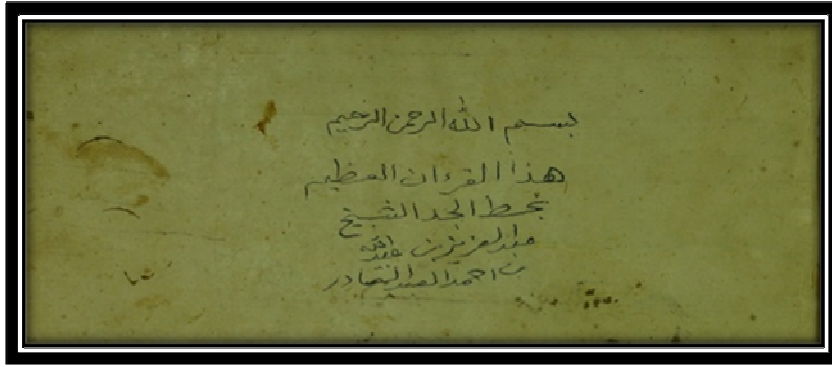 بسم الله الرحمن الرحيم
هذا القرءان العظيم
بخط الجد الشيخ
عبدالعزيز بن عبدالله
بن احمد العبدالقادر